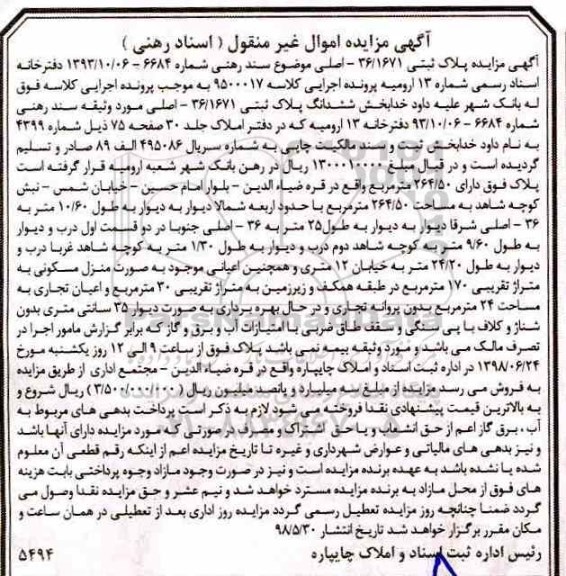 آگهی مزایده اموال غیر منقول ( اسناد رهنی )
آگهی مزایده پلاک ثبتی ۳۶/۱۶۷۱ - اصلی موضوع سند رهنی شماره ۶۶۸۴ - ۱۳۹۳/۱۰/۰۶ دفترخانه
اسناد رسمی شماره ۱۳ ارومیه پرونده اجرایی کلاسه ۹۵۰۰۰۱۷ به موجب پرونده اجرایی کلاسه فوق
له بانک شهر علیه داود خدابخش ششدانگ پلاک ثبتی ۳۶/۱۶۷۱ - اصلی مورد وثیقه سند رهنی
شماره ۶۶۸۴ - ۹۳/۱۰/۰۶ دفترخانه ۱۳ ارومیه که در دفتر املاک جلد ۳۰ صفحه ۷۵ ذیل شماره ۴۳۹۹
به نام داود خدابخش ثبت و سند مالکیت چاپی به شماره سریال ۴۹۵۰۸۶ الف ۸۹ صادر و تسلیم
گردیده است و در قبال مبلغ ریال در رهن بانک شهر شعبه ارومیه قرار گرفته است
پلاک فوق دارای ۲۶۴/۵۰ مترمربع واقع در قره ضیاء الدین - بلوار امام حسین - خیابان شمس - نبش
کوچه شاهد به مساحت ۲۶۴/۵۰ مترمربع با حدود اربعه شمالا دیوار به دیوار به طول ۱۰/۶۰ متر به
۳۶ - اصلی شرقا دیوار به دیوار به طول ۲۵ متر به ۳۶ - اصلی جنوبا در دو قسمت اول درب و دیوار
به طول ۹/۶۰ متر به کوچه شاهد دوم درب و دیوار به طول ۱/۳۰ متر به کوچه شاهد غربا درب و
دیوار به طول ۲۴/۲۰ متر به خیابان ۱۲ متری و همچنین اعیانی موجود به صورت منزل مسکونی به
متراژ تقریبی ۱۷۰ مترمربع در طبقه همکف و زیرزمین به متراژ تقریبی ۳۰ مترمربع و اعیان تجاری به
مساحت ۲۴ مترمربع بدون پروانه تجاری و در حال بهره برداری به صورت دیوار ۳۵ سانتی متری بدون
شناژ و کلاف با پی سنگی و سقف طاق ضربی با امتیازات آب و برق و گاز که برابر گزارش مامور اجرا در
تصرف مالک می باشد و مورد وثیقه بیمه نمی باشد پلاک فوق از ساعت ۹ الی ۱۲ روز یکشنبه مورخ
۱۳۹۸/۰۶/۲۴ در اداره ثبت اسناد و املاک چایپاره واقع در قره ضیاء الدین - مجتمع اداری از طریق مزایده
به فروش می رسد مزایده از مبلغ سه میلیارد و پانصد میلیون ریال (۳/۵۰۰/۰۰۰/۰۰۰) ریال شروع و
به بالاترین قیمت پیشنهادی نقدا فروخته می شود لازم به ذکر است پرداخت بدهی های مربوط به
آب ، برق گاز اعم از حق انشعاب و یا حق اشتراک و مصرف در صورتی که مورد مزایده دارای آنها باشد
و نیز بدهی های مالیاتی و عوارض شهرداری و غیره تا تاریخ مزایده اعم از اینکه رقم قطعی آن معلوم
شده یا نشده باشد به عهده برنده مزایده است و نیز در صورت وجود مازاد وجوه پرداختی بابت هزینه
های فوق از محل مازاد به برنده مزایده مسترد خواهد شد و نیم عشر و حق مزایده نقدا وصول می
گردد ضمنا چنانچه روز مزایده تعطیل رسمی گردد مزایده روز اداری بعد از تعطیلی در همان ساعت و
مکان مقرر برگزار خواهد شد تاریخ انتشار ۹۸/۵/۳۰
رئیس اداره ثبت اسناد و املاک چایپاره ۵۴۹۴